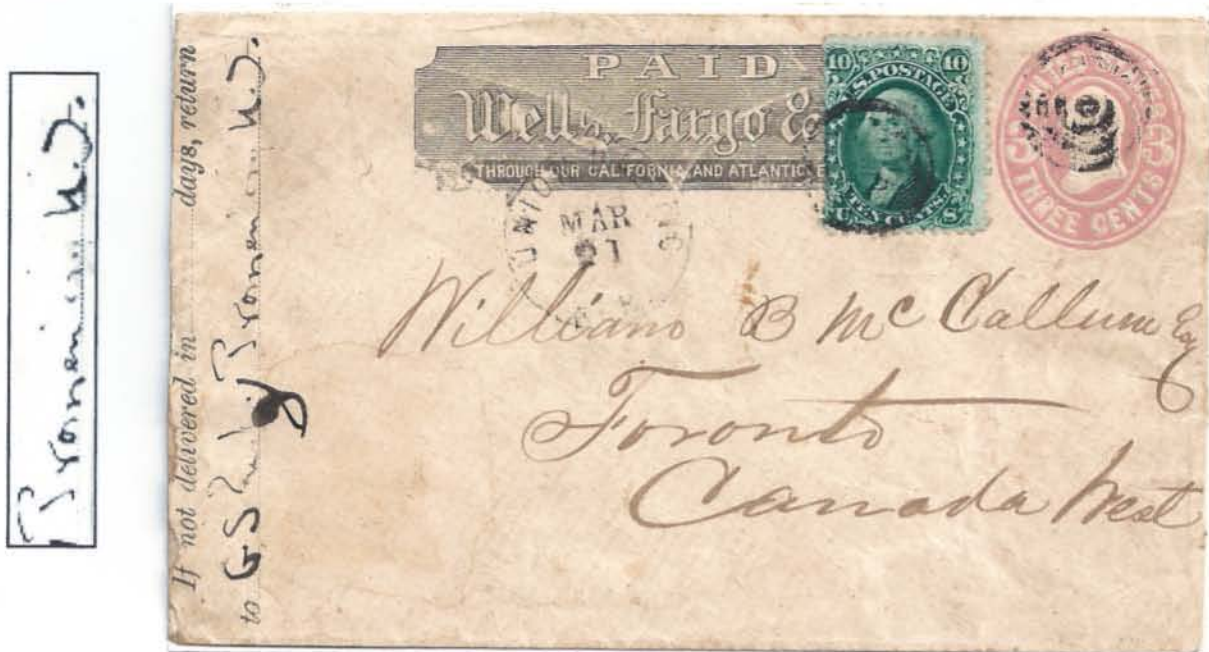 If not delivered in days, return
to G S
PAID
Wells, Fargo &
THROUGH OUR CALIFORNIA AND ATLANTIC E
10 10
U.S. POSTAGE
TEN CENTS.
U S
3 3
THREE CENTS
MAR
21
William B McCallum Esq
Toronto
Canada West